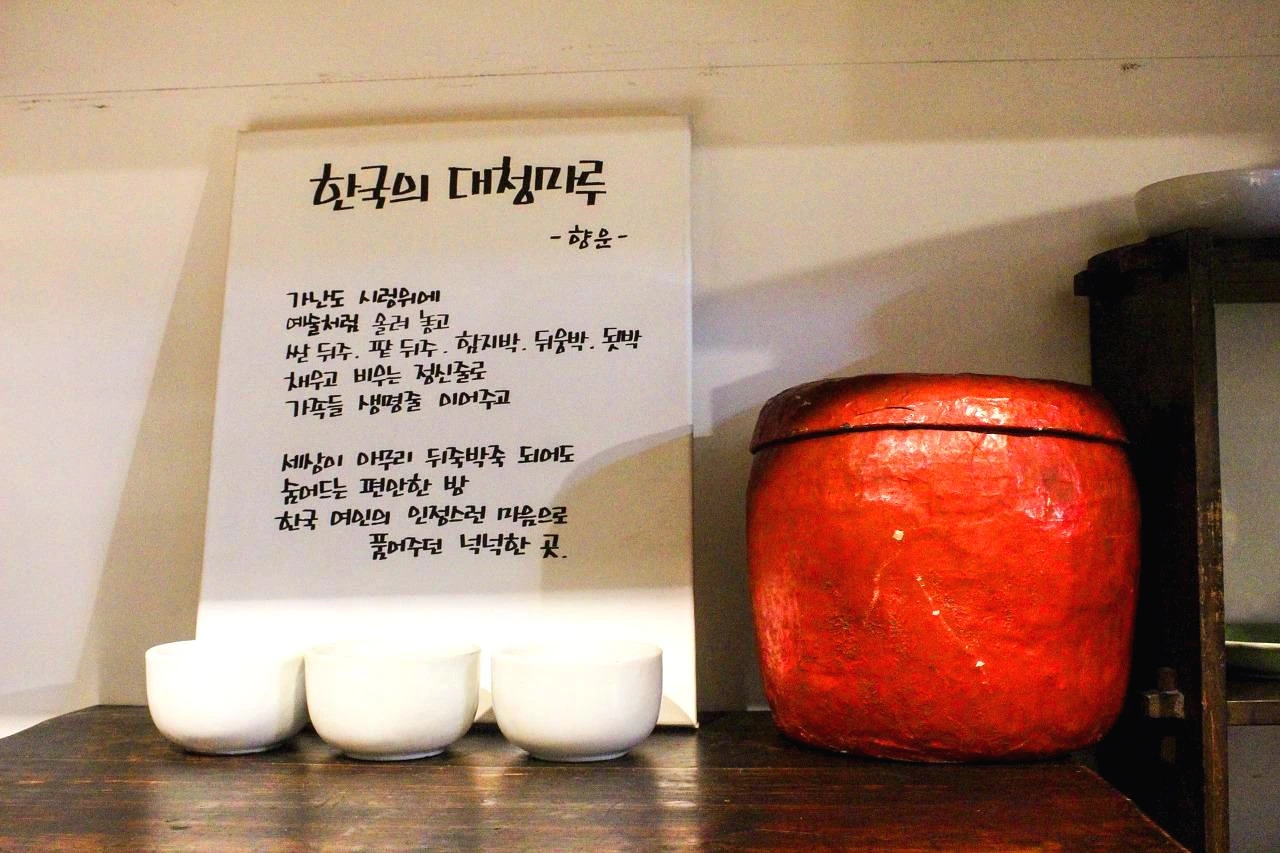 한국의 대청마루
- 향운 -
가난도 시렁위에
예술처럼 올려 놓고
쌀 뒤주. 팥 뒤주. 함지박. 뒤웅박. 됫박
채우고 비우는 정신줄로
가족들 생명줄 이어주고
세상이 아무리 뒤죽박죽 되어도
숨어드는 편안한 방
한국 여인의 인정스런 마음으로
품어주던 넉넉한 곳.